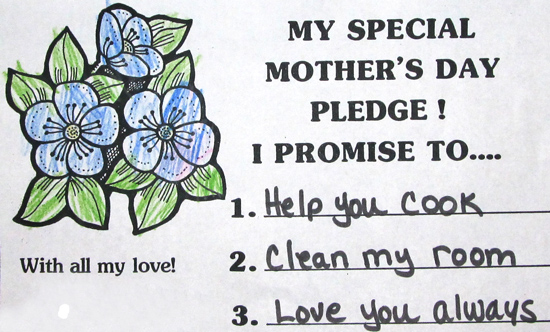 MY SPECIAL
MOTHER'S DAY
PLEDGE !
I PROMISE TO....
1. Help you cook
2. Clean my room
3. Love you always
With all my love!